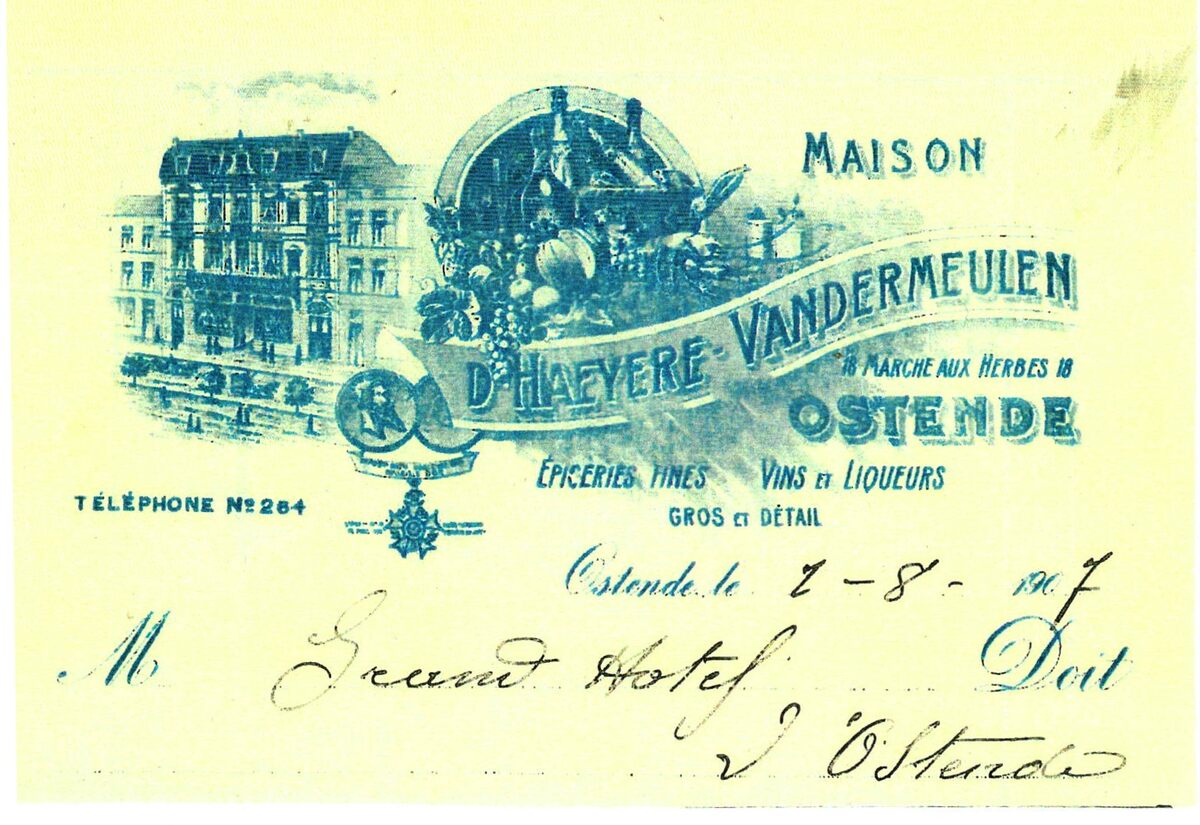 MAISON
D'HAEYERE-VANDERMEULEN
18 MARCHE AUX HERBES 18
OSTENDE
ÉPICERIES FINES VINS ET LIQUEURS
GROS ET DÉTAIL
TÉLÉPHONE Nº 264
Ostende le 1-8-1907
M Grand Hotel Doit
d'Ostende